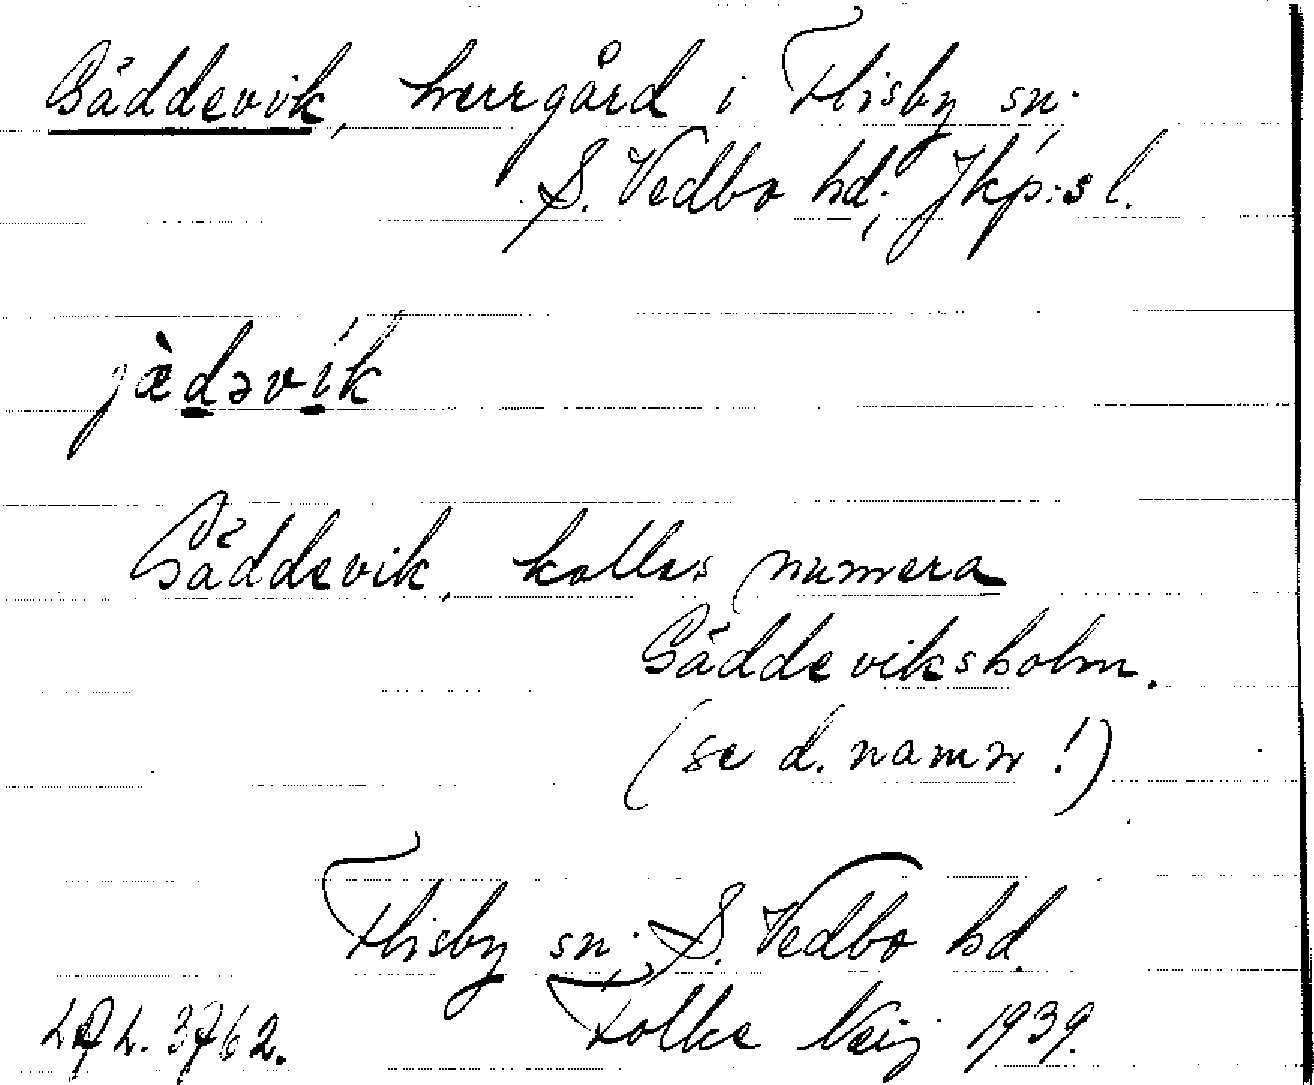 Gäddevik, herrgård i Flisby sn;
S. Vedbo hd; Jkp:s l.
jæ̀dəvík
Gäddevik, kallas numera
Gäddeviksholm.
(se d. namn!)
Flisby sn; S. Vedbo hd.
Folke 1939.